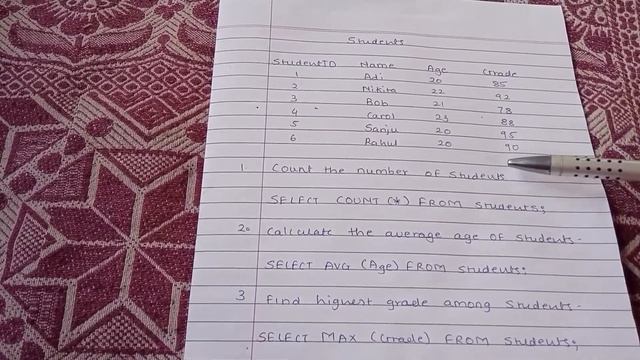 Students
StudentID Name Age Grade
1 Adi 20 85
2 Nikita 22 92
3 Bob 21 78
4 Carol 23 88
5 Sanju 20 95
6 Rahul 20 90
1. Count the number of students
SELECT COUNT (*) FROM Students;
2. Calculate the average age of students.
SELECT AVG (Age) FROM Students;
3 Find highest grade among students.
SELECT MAX (Grade) FROM Students;